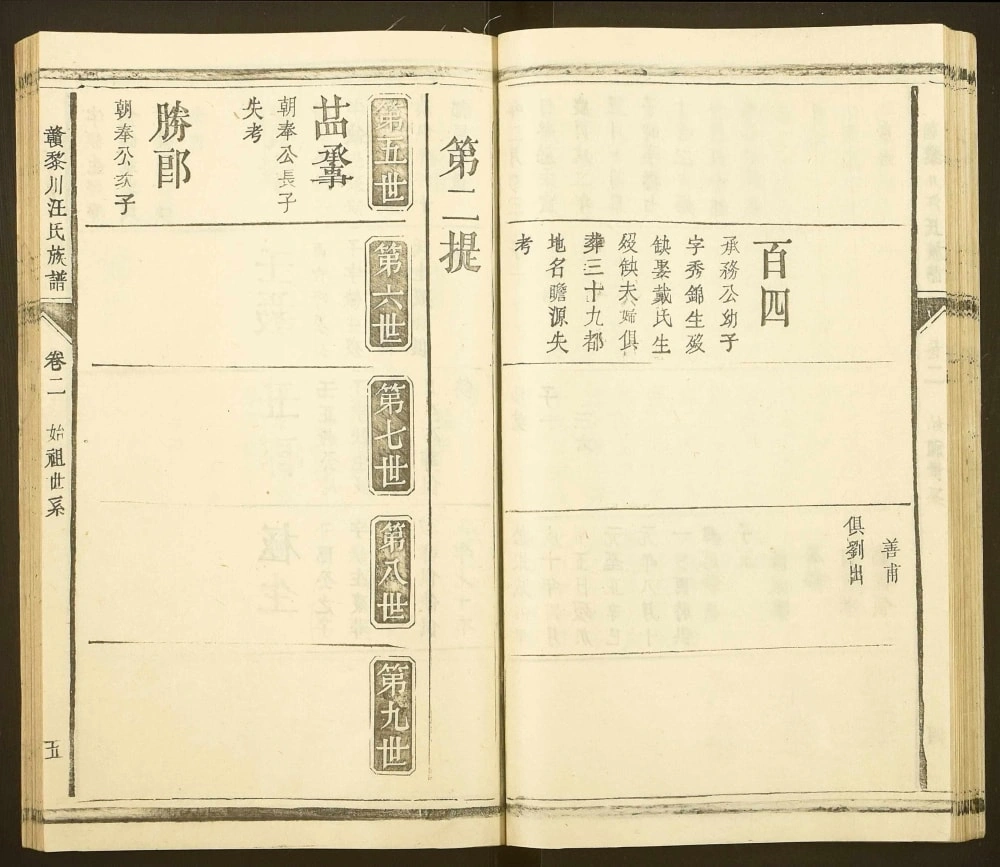 善甫
俱劉出
百四
承務公幼子
字秀錦生殁
缺娶戴氏生
殁缺夫婦俱
葬三十九都
地名瞻源失
考
第二提
第五世
第六世
第七世
第八世
第九世
朝奉公長子
失考
勝郎
朝奉公次子
贛黎川汪氏族譜
卷二
始祖世系
五